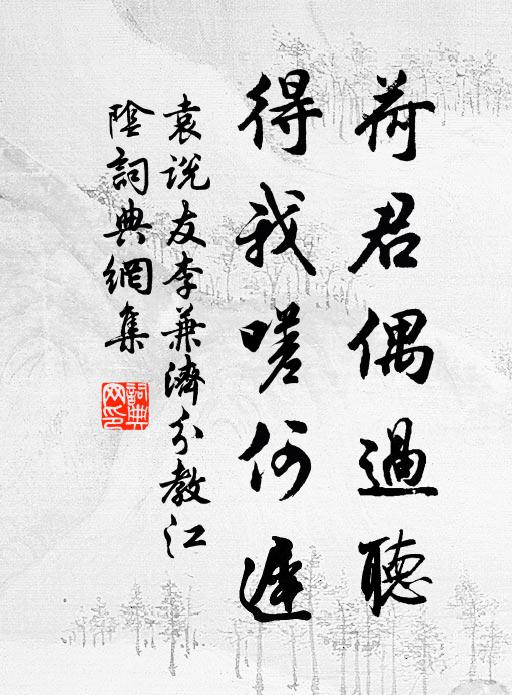 荷君偶過聽
得我嗟何遲
袁説友李兼濟分教江
陰詞典網集
詞典網印